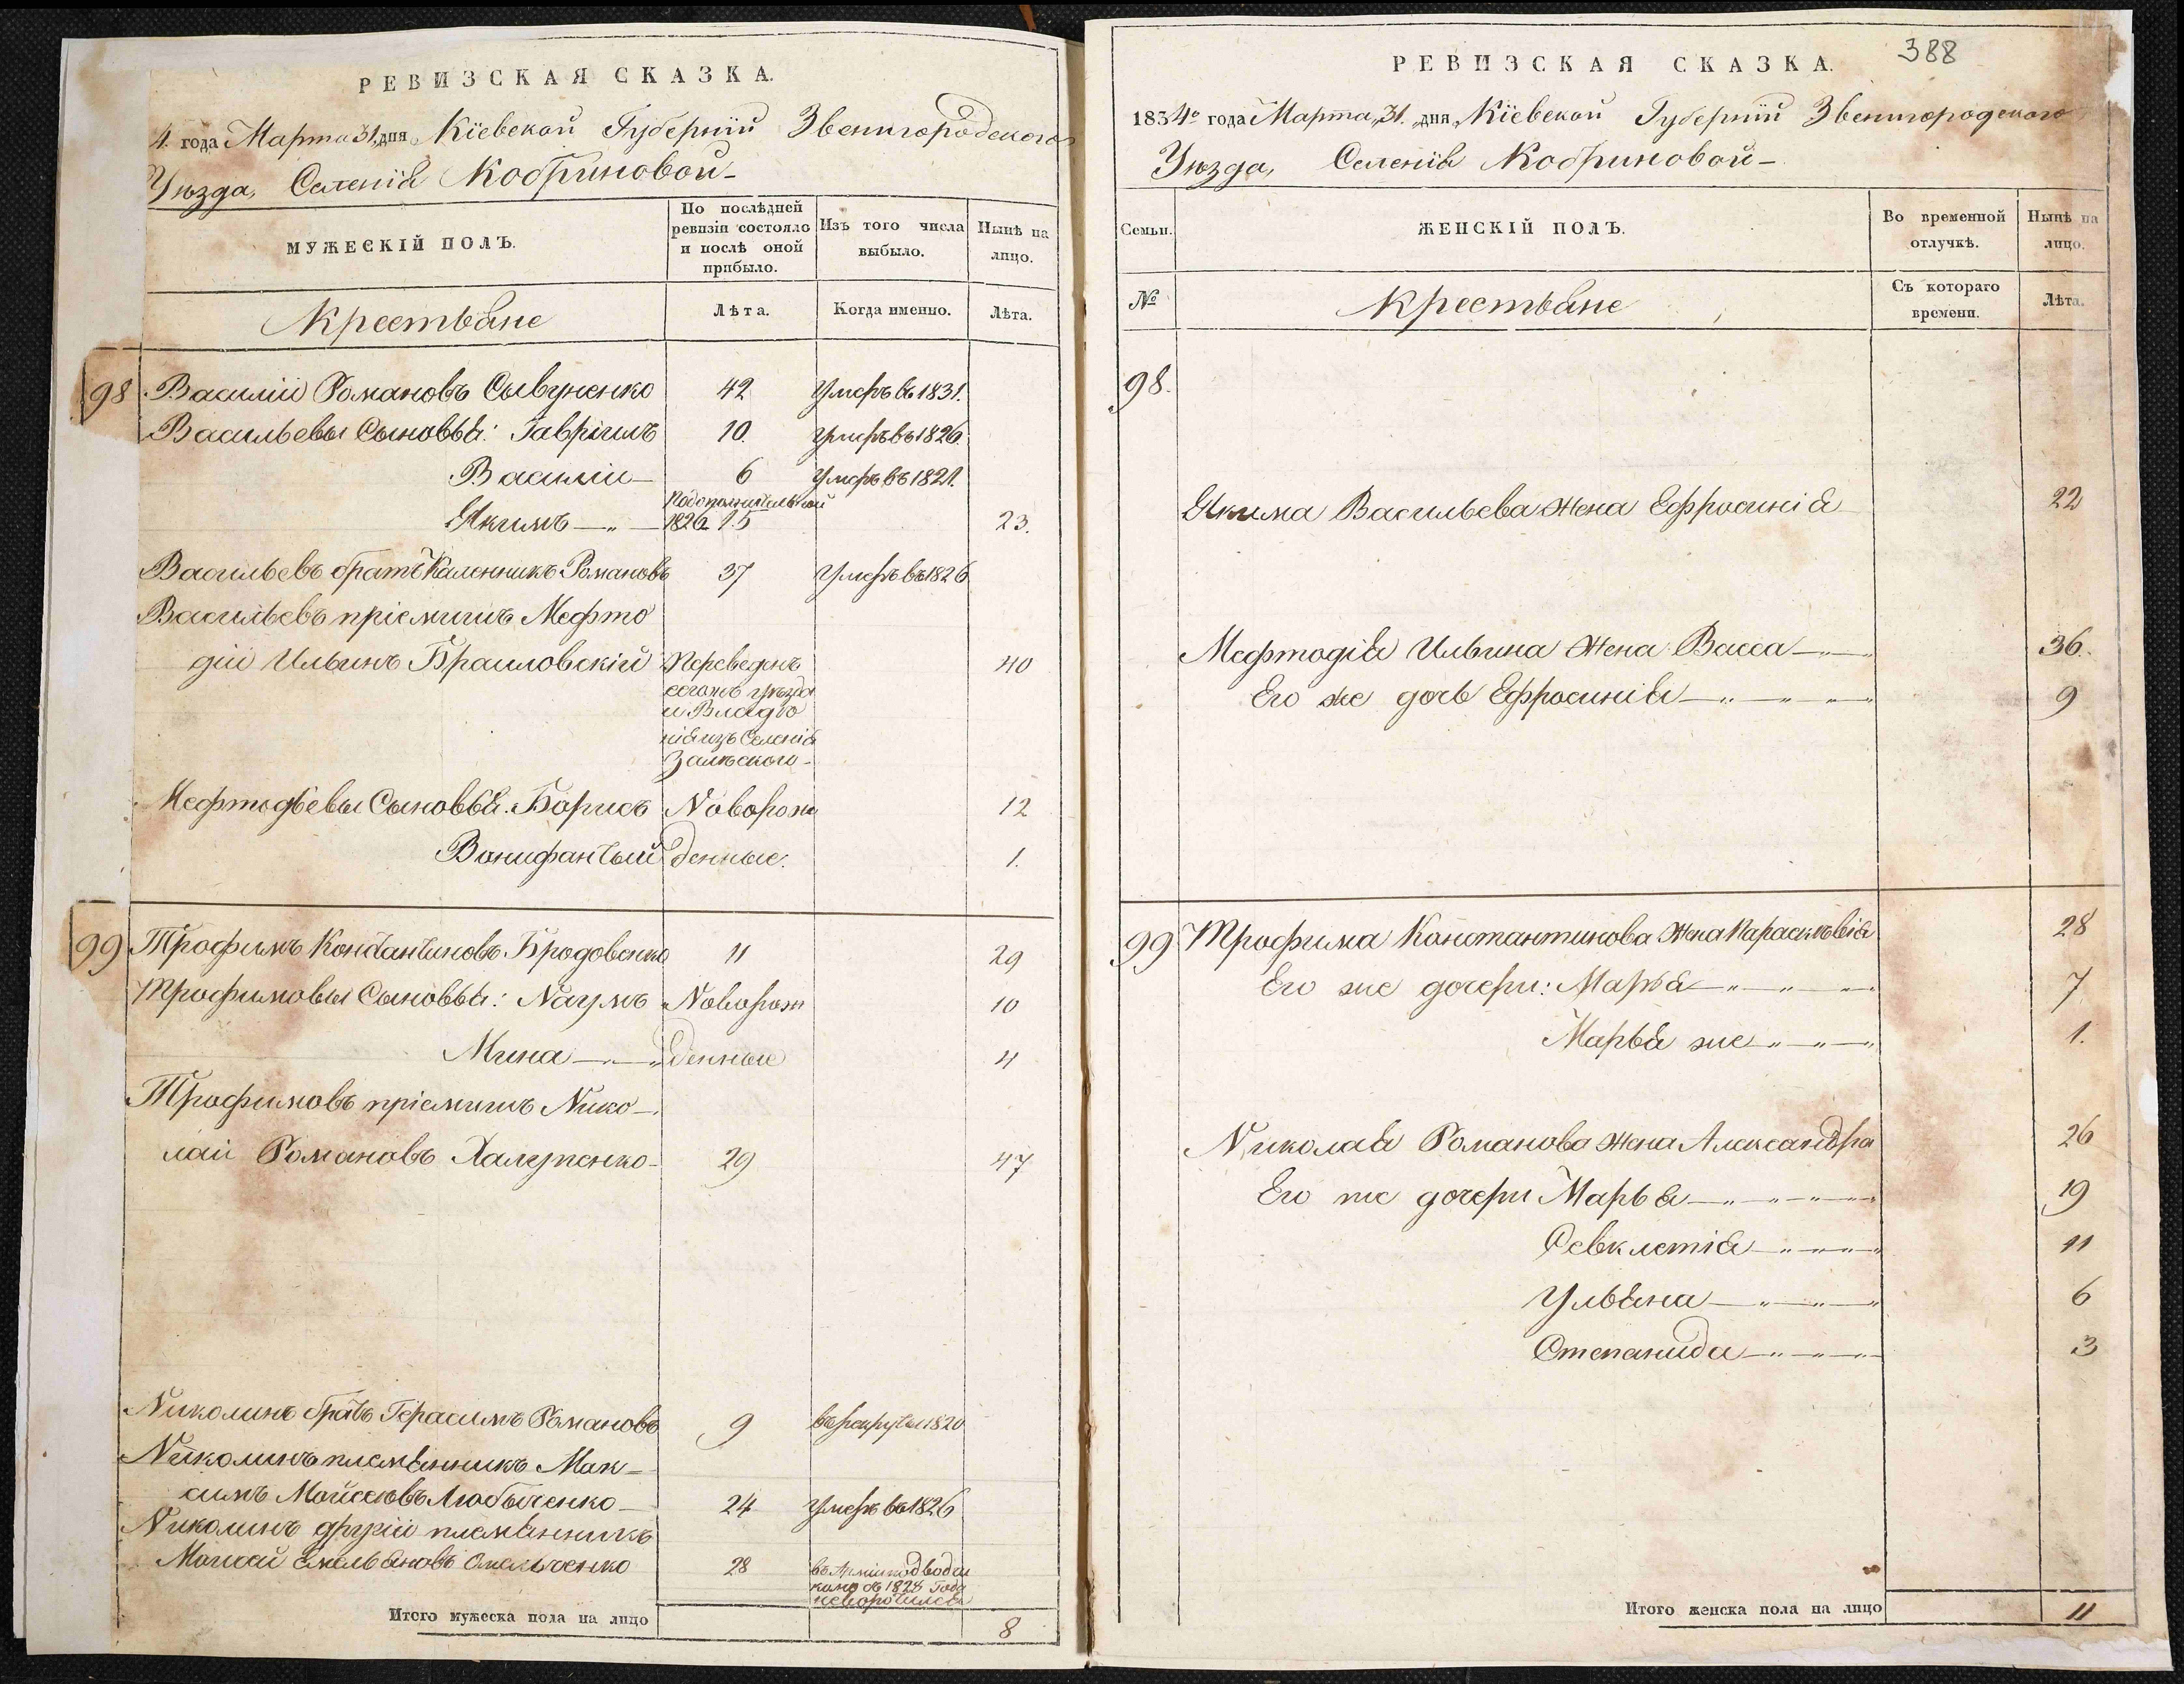 РЕВИЗСКАЯ СКАЗКА.
4. года Марта 31, дня, Кіевской Губерніи Звенигородскаго
Уѣзда, Селенія Кобриновой-
МУЖЕСКІЙ ПОЛЪ.
По послѣдней ревизіи состояло и послѣ оной прибыло.
Изъ того числа выбыло.
Нынѣ на лицо.
Крестьяне
Лѣта.
Когда именно.
Лѣта.
98 Василій Романовъ Сывуненко 42 Умеръ въ 1831.
Васильевы Сыновья: Гавріилъ 10. Умеръ въ 1826.
Василій 6 Умеръ въ 1821.
Подополнительной
Якимъ 1826 15 23.
Васильевъ братъ Каленникъ Романовъ 37 Умеръ въ 1826
Васильевъ пріемышъ Мефто
дій Ильинъ Браиловскій Переведенъ 40
сегожъ уѣзда
и Владѣ
нія изъ Селенія
Залѣскаго-
Мефтодьевы Сыновья. Борисъ Новорож 12
Вонифантый денные. 1.
99 Трофимъ Константиновъ Бродовенко 11 29
Трофимовы Сыновья: Наумъ Новорож 10
Мина денные 4
Трофимовъ пріемышъ Нико-
лай Романовъ Халупенко- 29 47
Николинъ братъ Герасимъ Романовъ 9 въ рекруты 1820
Николинъ племянникъ Мак-
симъ Мойсеювъ Любыченко 24 Умеръ въ 1826
Николинъ другій племянникъ
Мойсей Емельяновъ Омельченко 28 въ Арміи подводчи
комъ съ 1828 года
неворотился
Итого мужеска пола на лицо 8
388
РЕВИЗСКАЯ СКАЗКА.
1834го года Марта, 31. дня, Кіевской Губерніи Звенигородскаго
Уѣзда, Селенія Кобриновой-
Семьи.
ЖЕНСКІЙ ПОЛЪ.
Во временной отлучкѣ.
Нынѣ на лицо.
№
Крестьяне
Съ котораго времени.
Лѣта.
98.
Якима Васильева Жена Ефросинія 22
Мефтодія Ильина Жена Васса 36.
Его же дочь Ефросинія 9
99 Трофима Константинова Жена Параскѣвія 28
Его же дочери: Марья 7
Марья же 1.
Николая Романова Жена Александра 26
Его же дочери Марья 19
Февклетія 11
Ульяна 6
Степанида 3
Итого женска пола на лицо 11